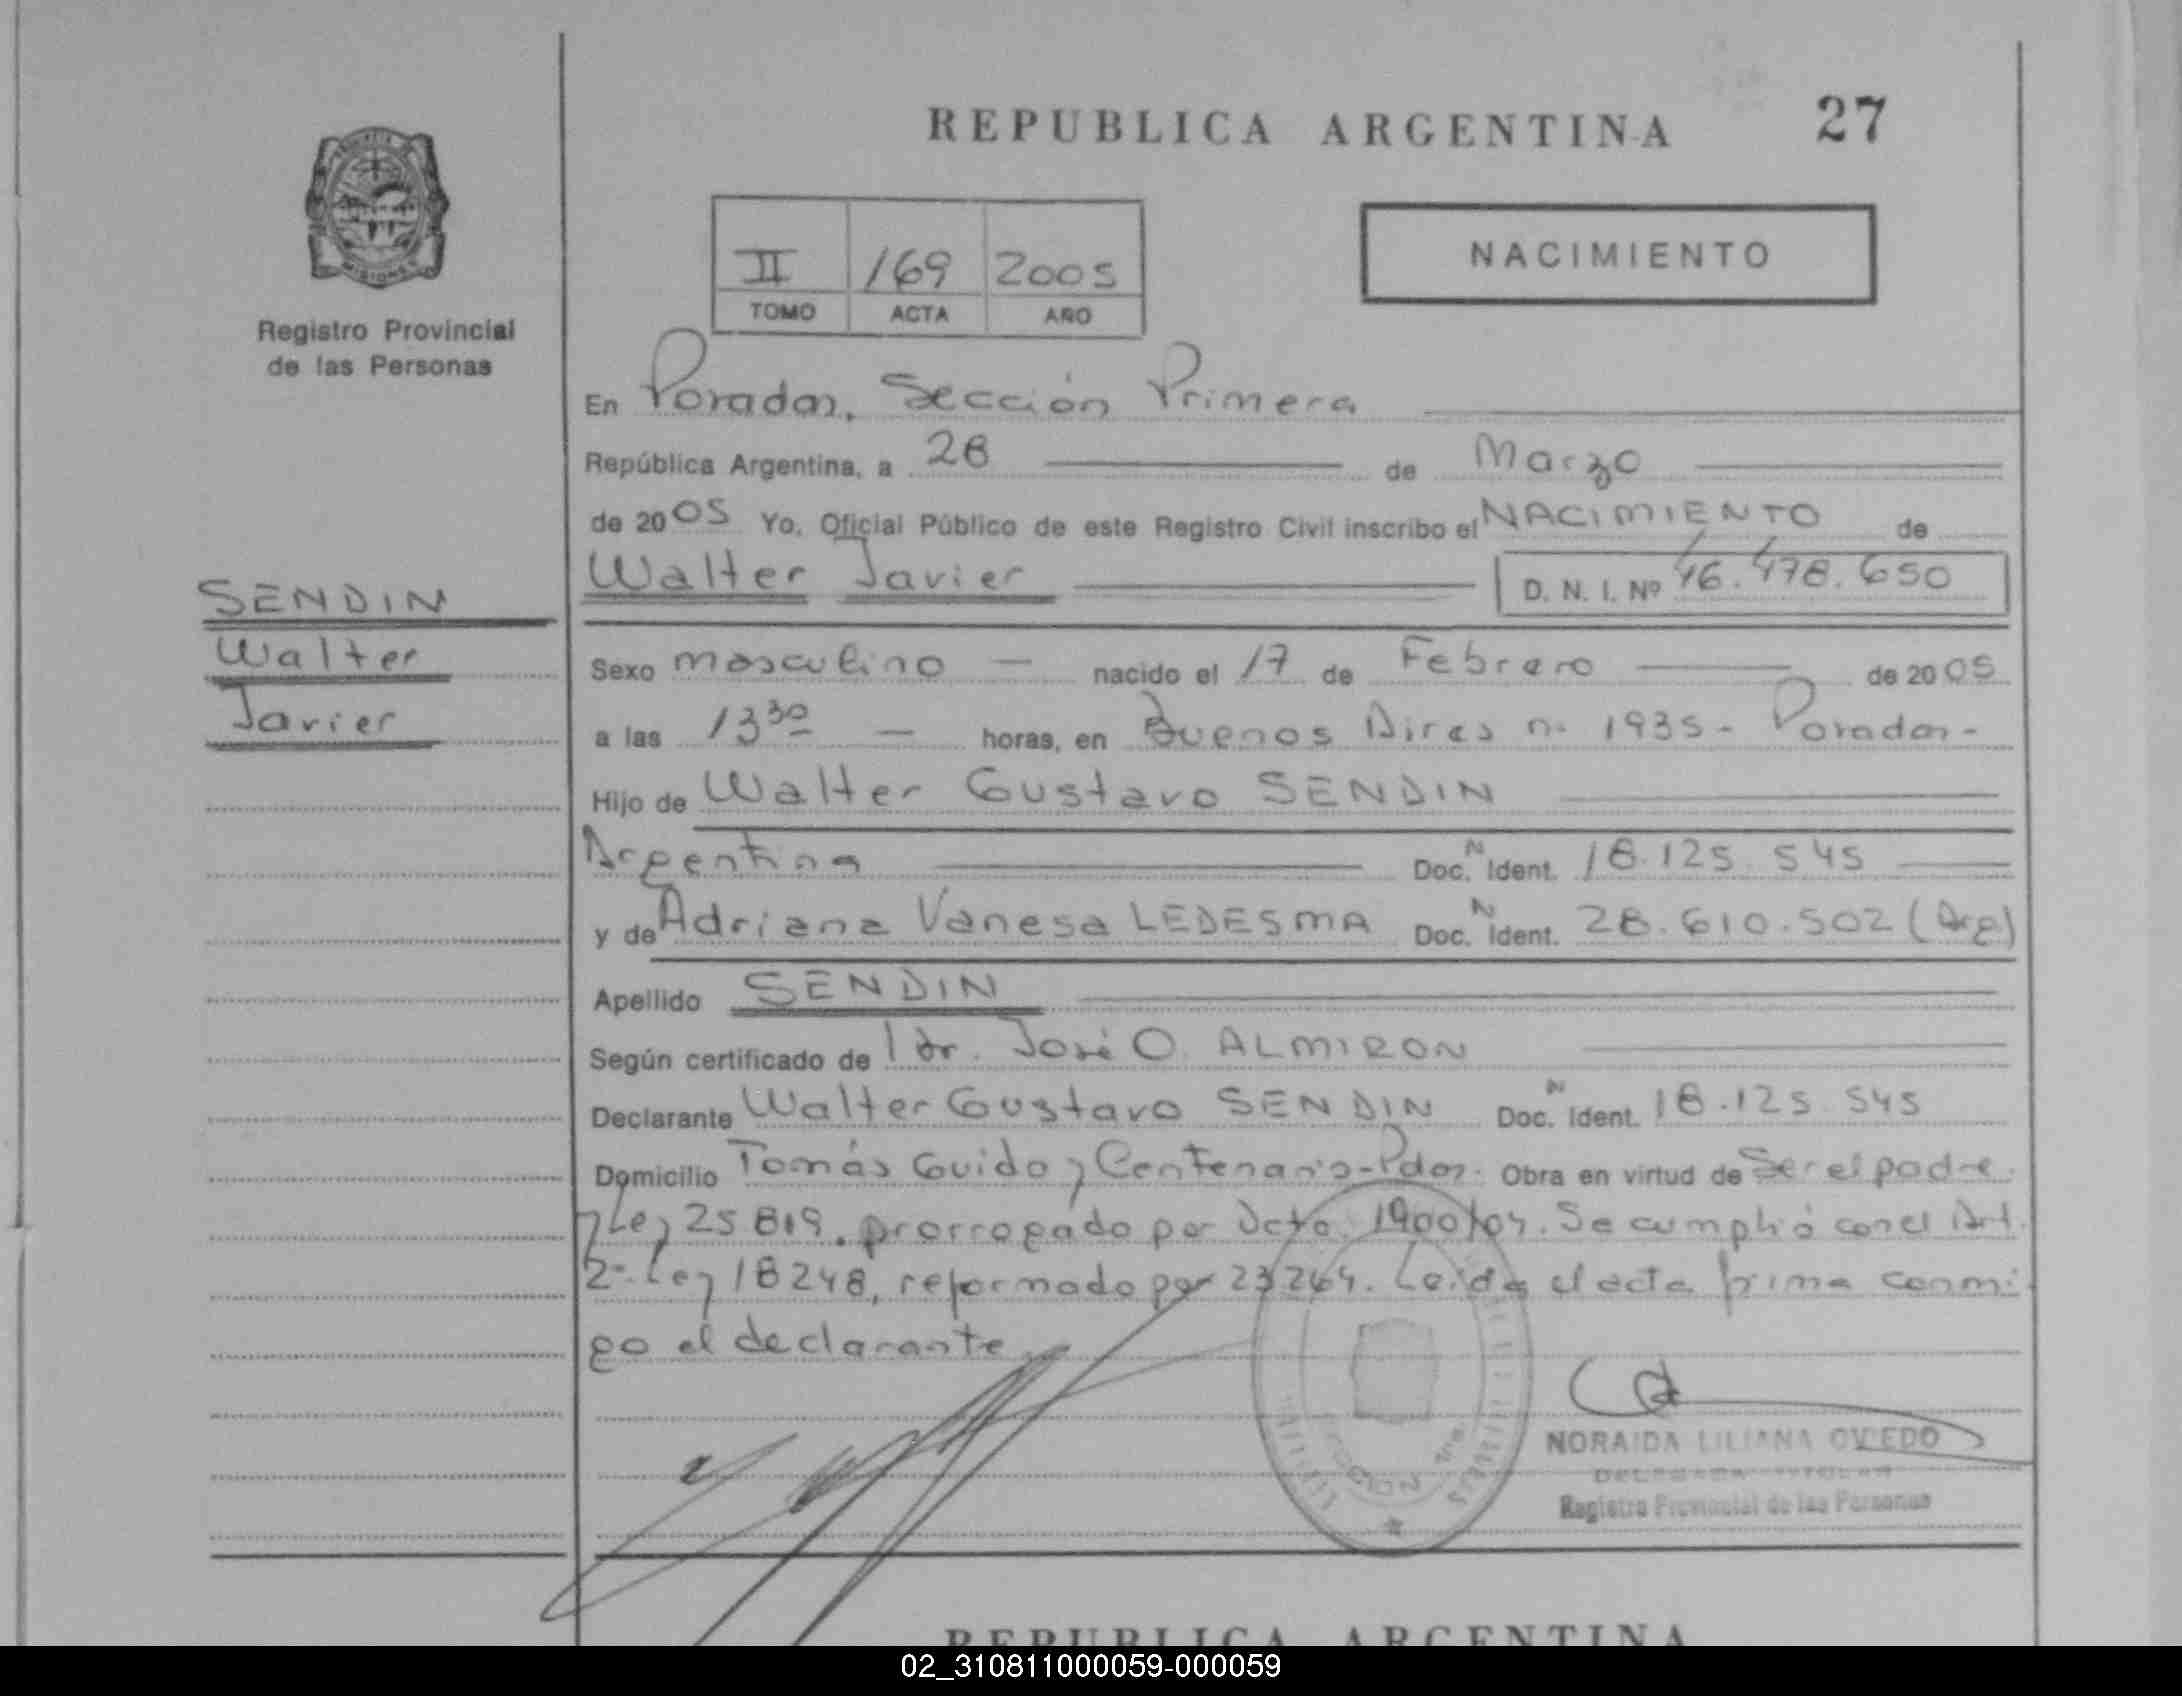 REPUBLICA ARGENTINA
27
MISIONES
Registro Provincial
de las Personas
II 169 2005
TOMO ACTA AÑO
NACIMIENTO
En Posadas, Sección Primera
República Argentina, a 28 de Marzo
de 2005 Yo, Oficial Público de este Registro Civil inscribo el NACIMIENTO de
Walter Javier D. N. I. Nº 46.478.650
SENDIN
Walter
Javier
Sexo masculino nacido el 17 de Febrero de 2005
a las 13 30 horas, en Buenos Aires n. 1935 - Posadas -
Hijo de Walter Gustavo SENDIN
Argentina Doc. N Ident. 18.125.545
y de Adriana Vanesa LEDESMA Doc. N Ident. 28.610.502 (Arg)
Apellido SENDIN
Según certificado de dr. José O. ALMIRON
Declarante Walter Gustavo SENDIN Doc. N Ident. 18.125.545
Domicilio Tomás Guido y Centenario - Pdas. Obra en virtud de Ser el padre.
y Ley 25819. prorrogado por Dcto. 1900/04. Se cumplió con el Art.
2º Ley 18248, reformado por 23264. Leida el acta firma conmi
go el declarante
NORAIDA LILIANA OVIEDO
DELEGADA TITULAR
Registro Provincial de las Personas
REPUBLICA ARGENTINA
02_310811000059-000059